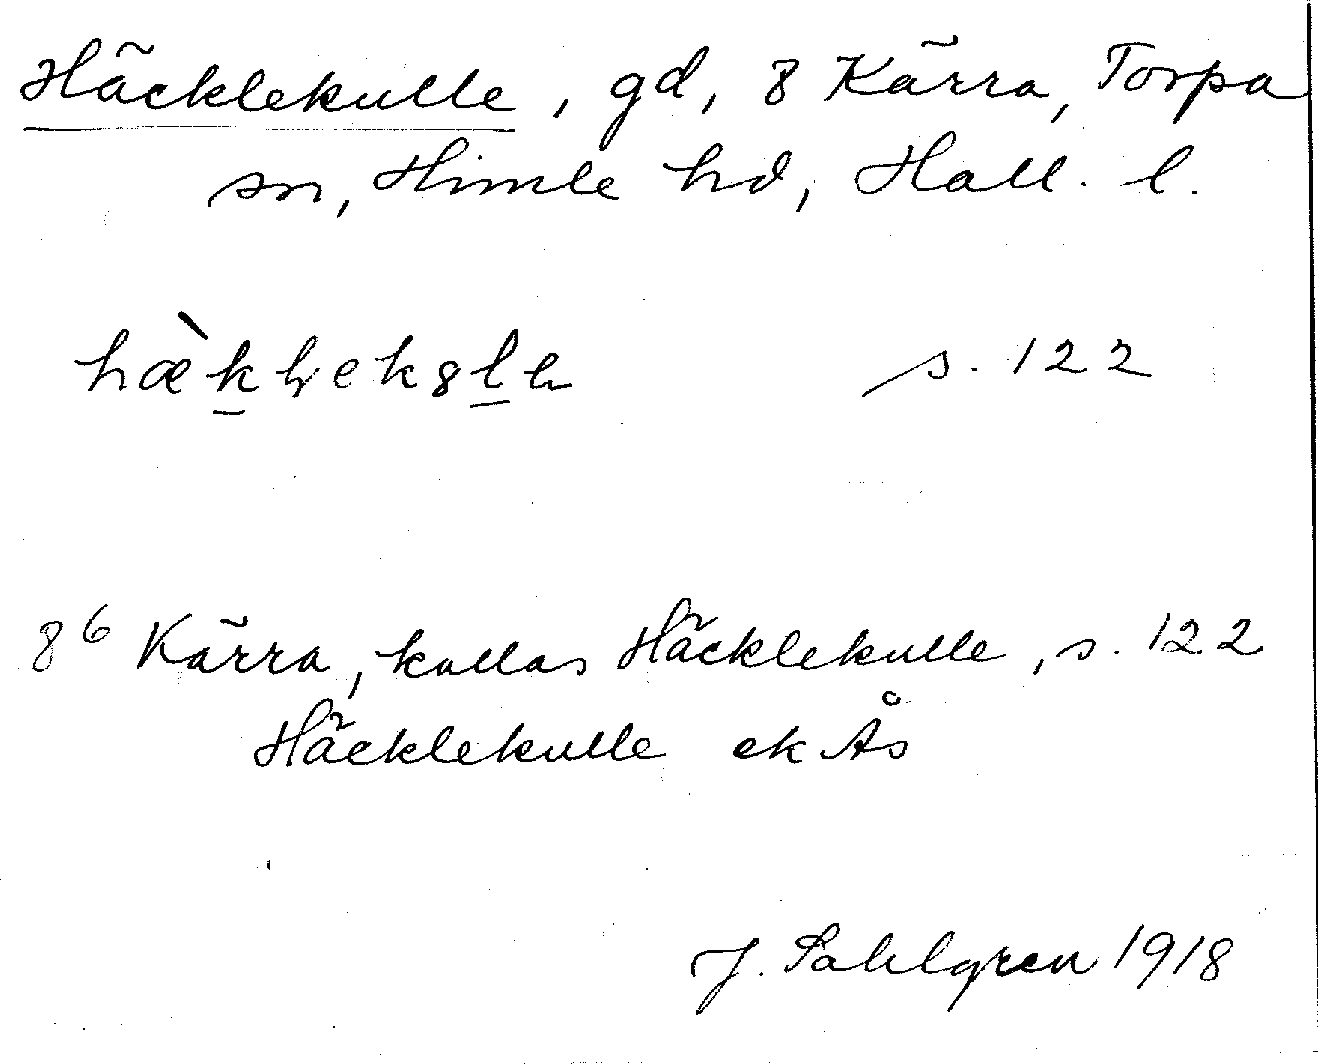 Häcklekulle, gd, 8 Kärra, Torpa
sn, Himle hd, Hall. l.
s. 122
8⁶ Kärra, kallas Häcklekulle, s. 122
Häcklekulle ek Ås
J. Sahlgren 1918